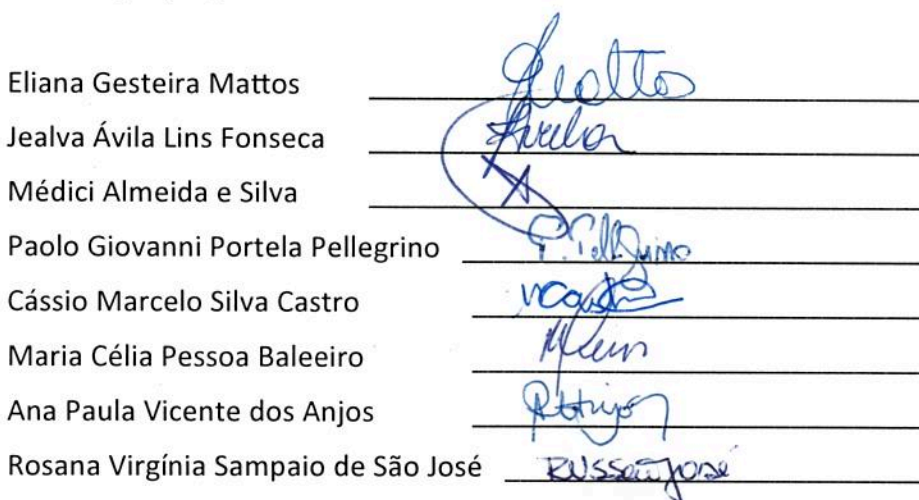 Eliana Gesteira Mattos
Jealva Ávila Lins Fonseca
Médici Almeida e Silva
Paolo Giovanni Portela Pellegrino P. Pellegrino
Cássio Marcelo Silva Castro
Maria Célia Pessoa Baleeiro
Ana Paula Vicente dos Anjos
Rosana Virgínia Sampaio de São José